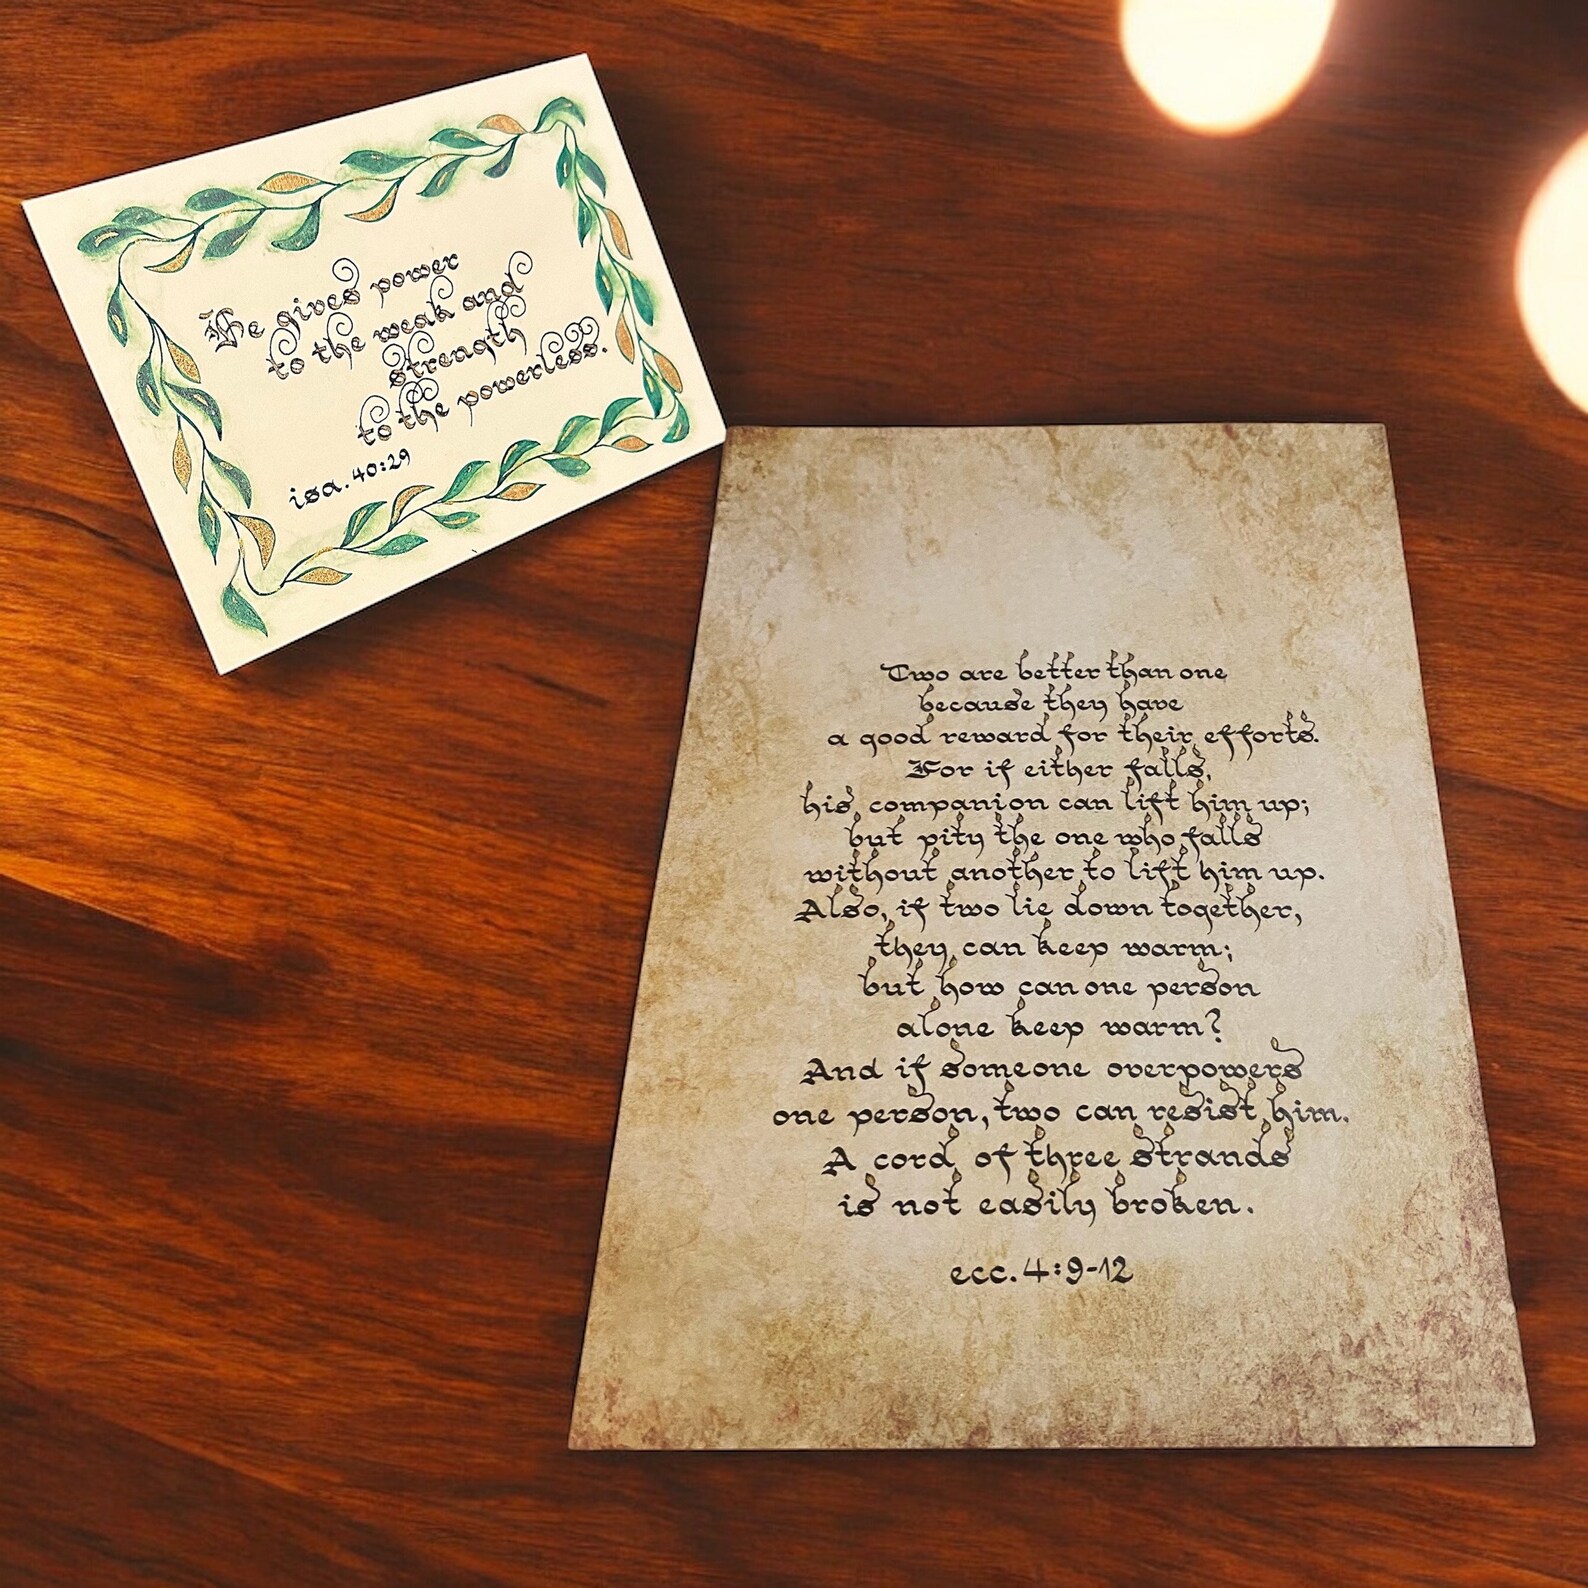 He gives power
to the weak and
strength
to the powerless.
isa. 40:29
Two are better than one
because they have
a good reward for their efforts.
For if either falls,
his companion can lift him up;
but pity the one who falls
without another to lift him up.
Also, if two lie down together,
they can keep warm;
but how can one person
alone keep warm?
And if someone overpowers
one person, two can resist him.
A cord of three strands
is not easily broken.
ecc. 4:9-12